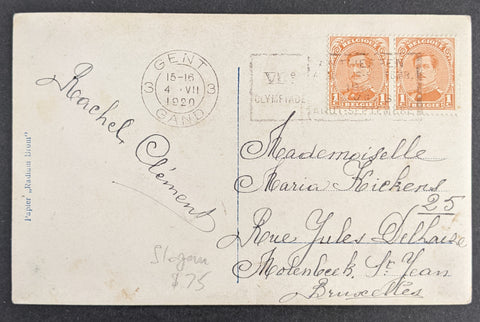 GENT
3 15-16 3
4 ·VII
1920
GAND
VIIe
OLYMPIADE
ANTWERPEN
AUG.-SEPTEMBER
BELGIQUE BELGIQUE
1 1 1 1
BELGIË BELGIË
Rachel Clément
Papier "Radium Brom"
Mademoiselle
Maria Kickens
25
Rue Jules Delhaize
Molenbeek St Jean
Bruxelles
Slogan
$75